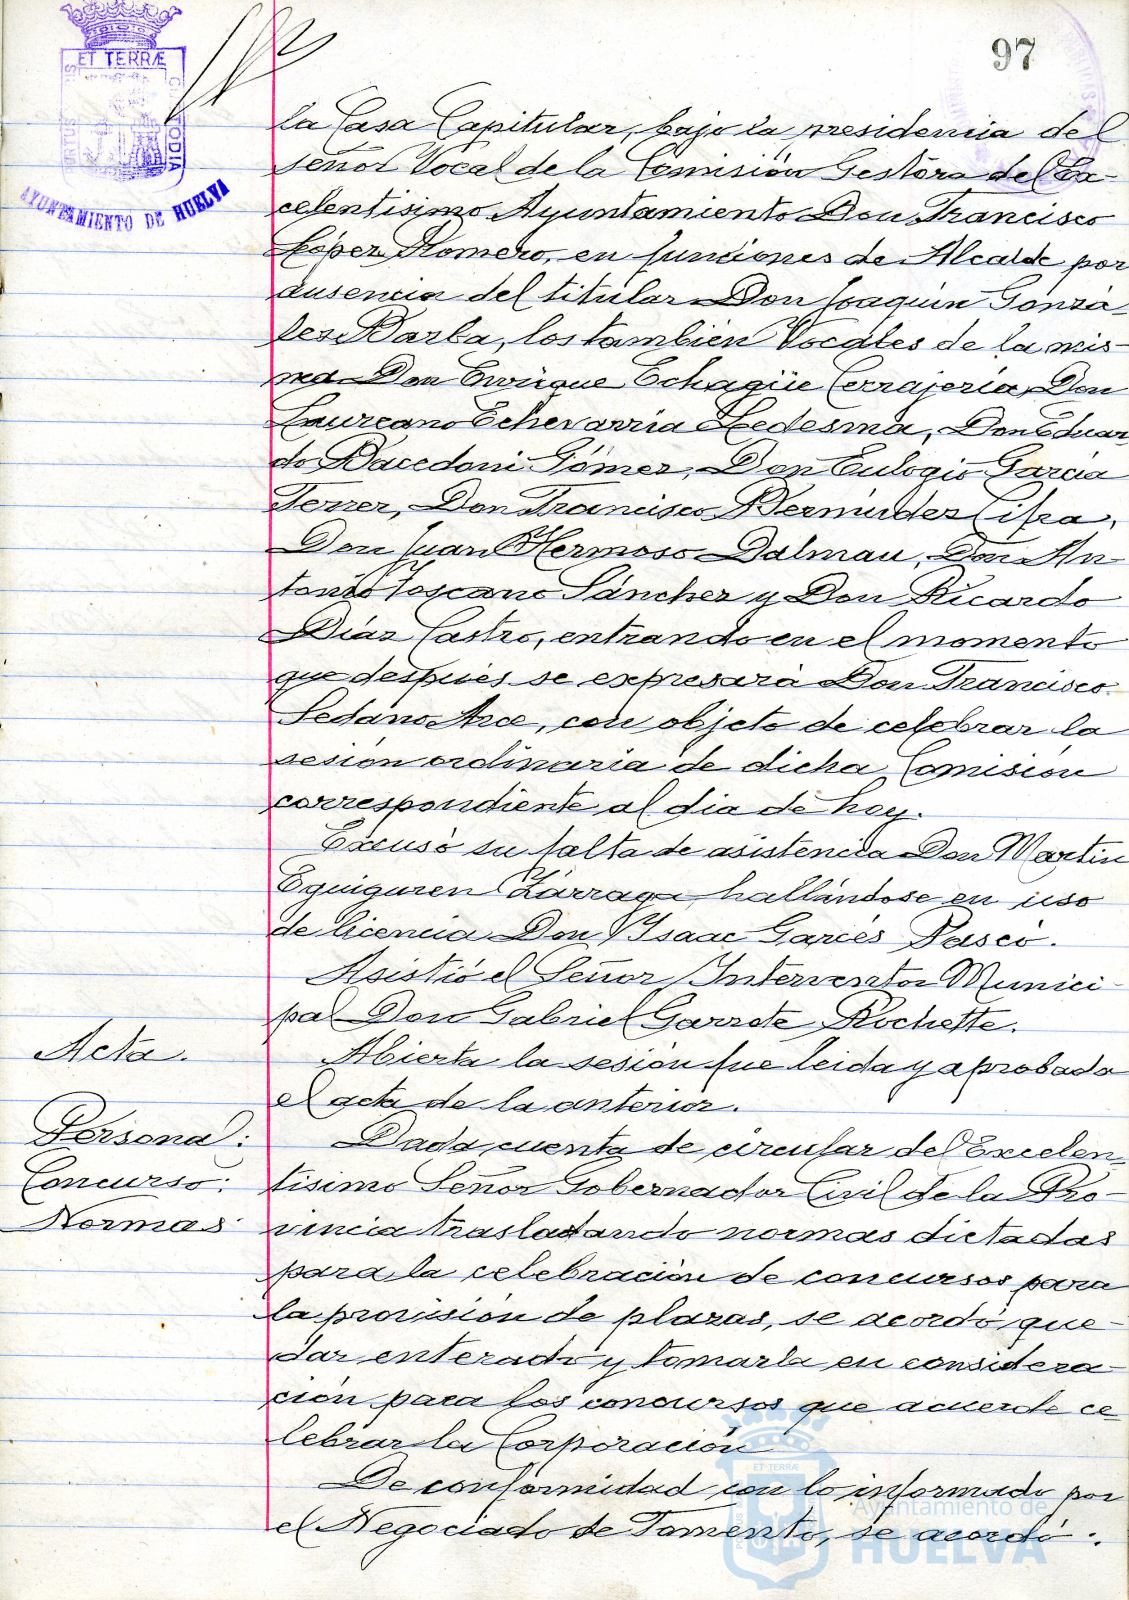 97
ET TERRÆ
PORTUS
CUSTODIA
AYUNTAMIENTO DE HUELVA
la Casa Capitular, bajo la presidencia del
señor Vocal de la Comisión Gestora del Ex-
celentísimo Ayuntamiento Don Francisco
López Romero, en funciones de Alcalde por
ausencia del titular Don Joaquín Gonzá-
lez Barba, los también Vocales de la mis-
ma Don Enrique Echagüe Cerrajería, Don
Laureano Echevarría Ledesma, Don Eduar-
do Bacedoni Gómez, Don Eulogio García
Ferrer, Don Francisco Bermúdez Cifra,
Don Juan Hermoso Dalmau, Don An-
tonio Toscano Sánchez y Don Ricardo
Díaz Castro, entrando en el momento
que después se expresará Don Francisco
Sedano Arce, con objeto de celebrar la
sesión ordinaria de dicha Comisión
correspondiente al día de hoy.
Excusó su falta de asistencia Don Martín
Eguiguren Zárraga, hallándose en uso
de licencia Don Isaac Garcés Pascó.
Asistió el Señor Interventor Munici-
pal Don Gabriel Garrote Rochette.
Acta.
Abierta la sesión fue leida y aprobada
el acta de la anterior.
Personal:
Concurso:
Normas
Dada cuenta de circular del Excelen-
tísimo Señor Gobernador Civil de la Pro-
vincia trasladando normas dictadas
para la celebración de concursos para
la provisión de plazas, se acordó que-
dar enterado y tomarla en considera-
ción para los concursos que acuerde ce
lebrar la Corporación
De conformidad con lo informado por
el Negociado de Fomento, se acordó:
ET TERRÆ
Ayuntamiento de
HUELVA